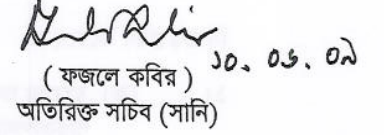 ১০. ০৬. ০৯
( ফজলে কবির )
অতিরিক্ত সচিব (সানি)